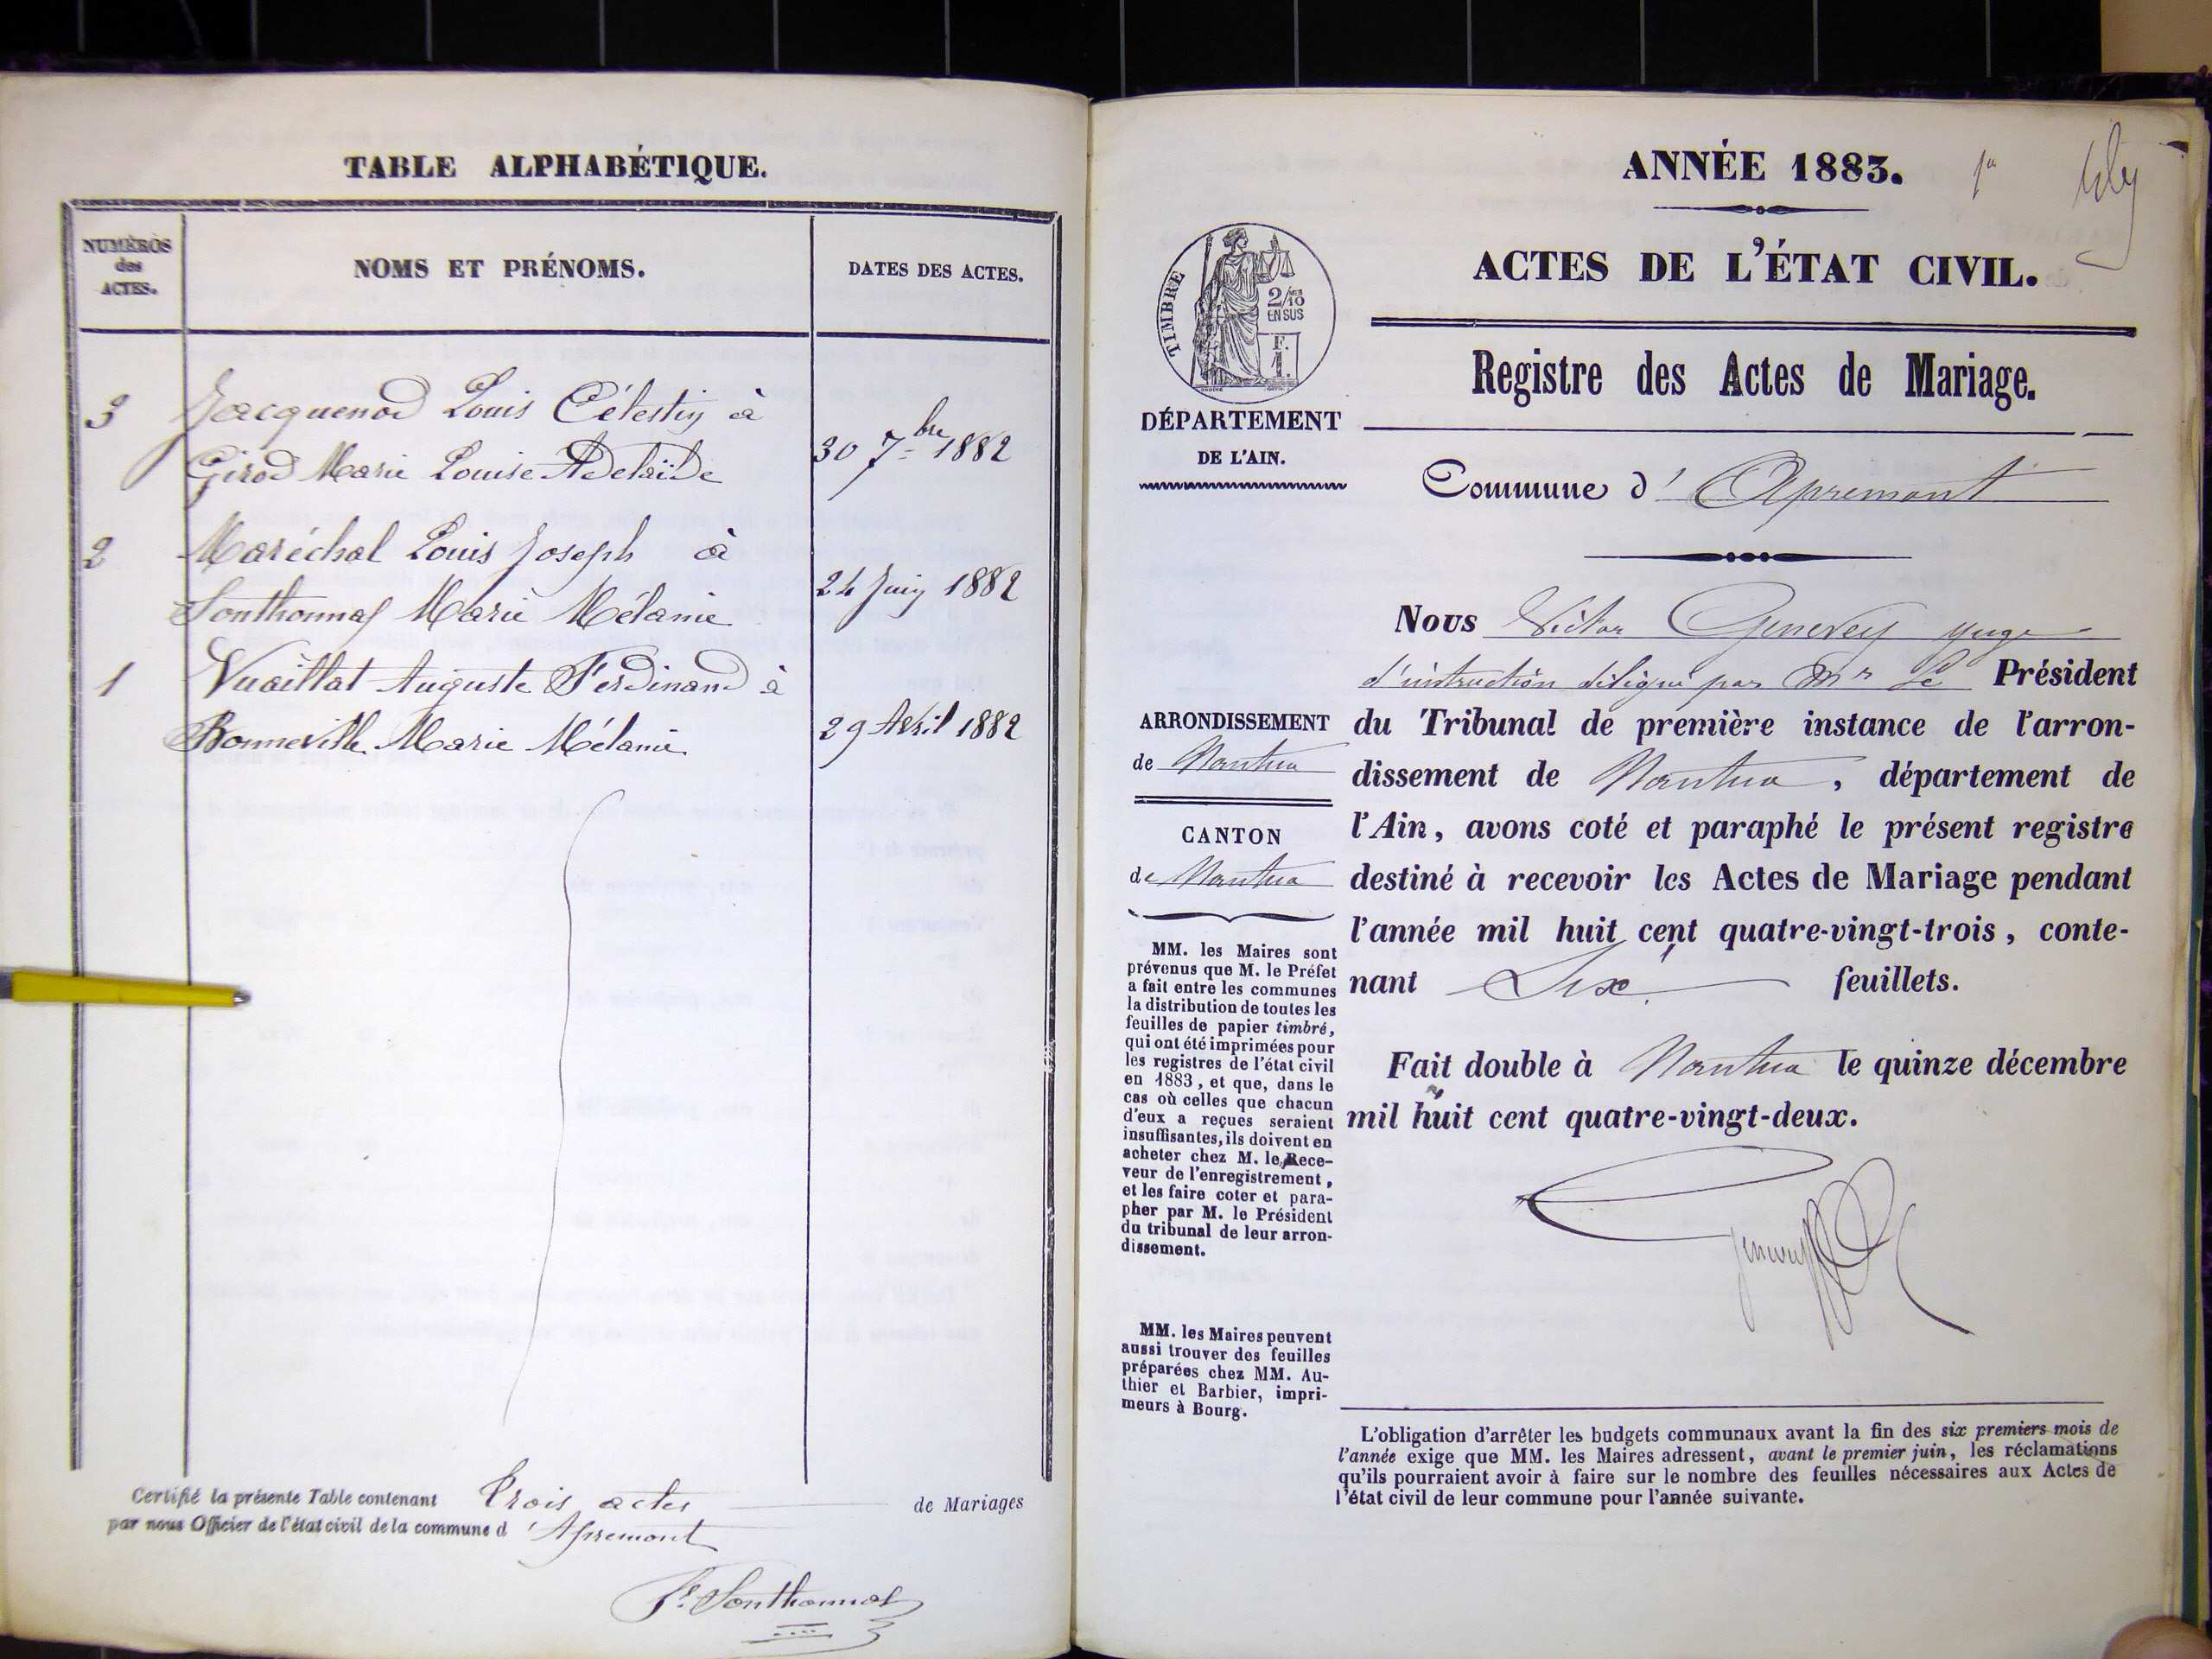 TABLE ALPHABÉTIQUE.
NUMÉROS
des
ACTES.
NOMS ET PRÉNOMS.
DATES DES ACTES.
3
Jacquenod Louis Célestin à
Girod Marie Louise Adelaïde
30 7bre 1882
2
Maréchal Louis Joseph à
Sonthonnax Marie Mélanie
24 Juin 1882
1
Vuaillat Auguste Ferdinand à
Bonneville Marie Mélanie
29 Avril 1882
Certifié la présente Table contenant trois actes de Mariages
par nous Officier de l'état civil de la commune d'Apremont
Sonthonnax
ANNÉE 1883.
ACTES DE L'ÉTAT CIVIL.
TIMBRE
2/10
EN SUS
F.
1.
DÉPARTEMENT
DE L'AIN.
Registre des Actes de Mariage.
Commune d'Apremont
Nous Victor Genevey juge
d'instruction délégué par Mr Le Président
du Tribunal de première instance de l'arron-
dissement de Nantua, département de
l'Ain, avons coté et paraphé le présent registre
destiné à recevoir les Actes de Mariage pendant
l'année mil huit cent quatre-vingt-trois, conte-
nant Six feuillets.
Fait double à Nantua le quinze décembre
mil huit cent quatre-vingt-deux.
Genevey
ARRONDISSEMENT
de Nantua
CANTON
de Nantua
MM. les Maires sont
prévenus que M. le Préfet
a fait entre les communes
la distribution de toutes les
feuilles de papier timbré,
qui ont été imprimées pour
les registres de l'état civil
en 1883, et que, dans le
cas où celles que chacun
d'eux a reçues seraient
insuffisantes, ils doivent en
acheter chez M. le Rece-
veur de l'enregistrement,
et les faire coter et para-
pher par M. le Président
du tribunal de leur arron-
dissement.
MM. les Maires peuvent
aussi trouver des feuilles
préparées chez MM. Au-
thier et Barbier, impri-
meurs à Bourg.
L'obligation d'arrêter les budgets communaux avant la fin des six premiers mois de
l'année exige que MM. les Maires adressent, avant le premier juin, les réclamations
qu'ils pourraient avoir à faire sur le nombre des feuilles nécessaires aux Actes de
l'état civil de leur commune pour l'année suivante.